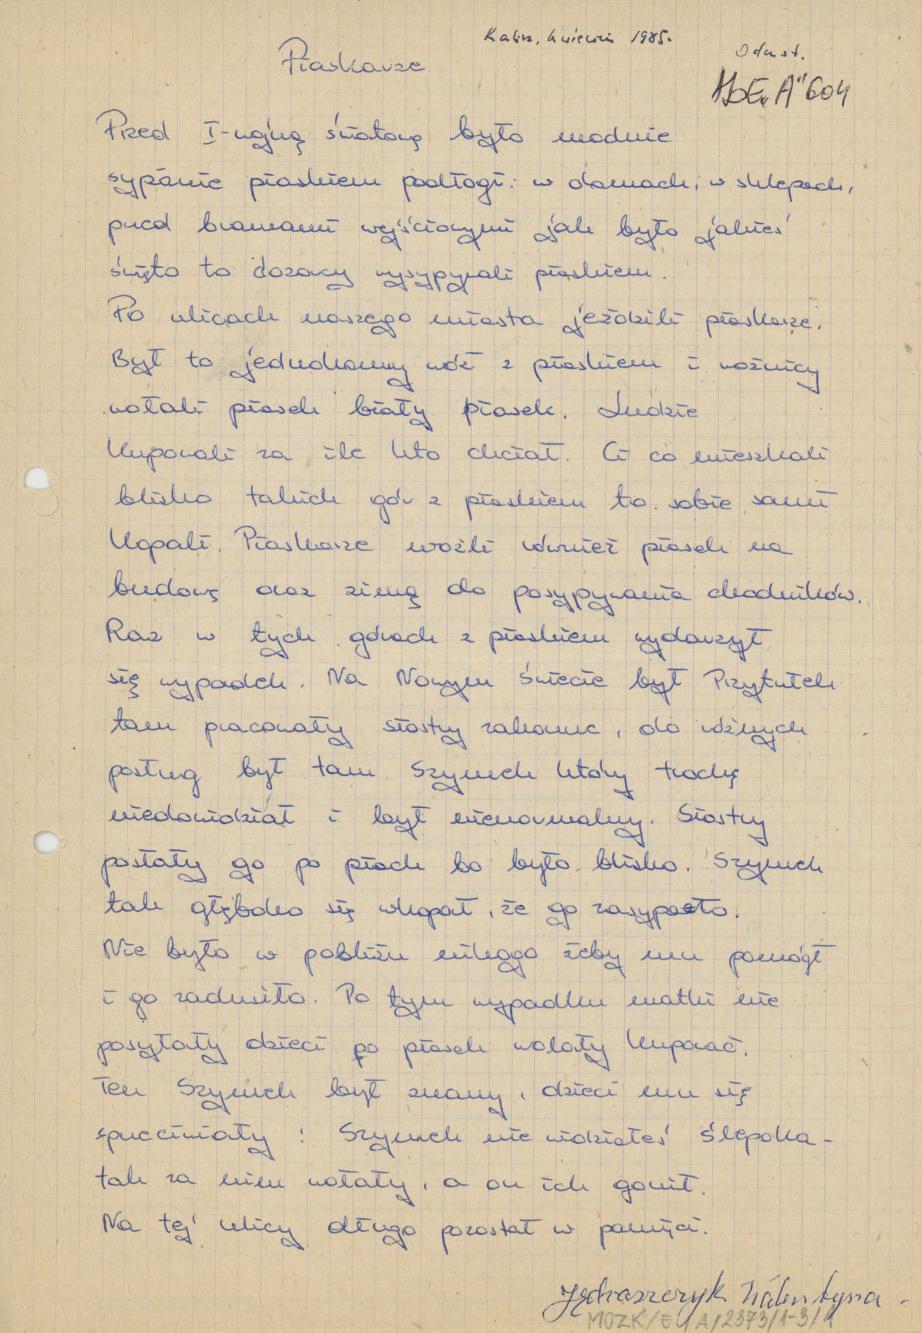 Kalisz, kwiecień 1985.
Odnst.
Piaskarze
MOZK/E/A/2373/1-3/1
Przed I-wojną światową było modnie
sypanie piaskiem podłogi: w domach, w sklepach,
przed bramami wejściowymi jak było jakieś
święto to dozorcy wysypywali piaskiem.
Po ulicach naszego miasta jeździli piaskarze.
Był to jednokonny wóz z piaskiem i woźnicy
wołali piasek biały piasek. Ludzie
kupowali za ile kto chciał. Ci co mieszkali
blisko takich gór z piaskiem to sobie sami
kopali. Piaskarze wozili również piasek na
budowę oraz zimą do posypywania chodników.
Raz w tych górach z piaskiem wydarzył
się wypadek. Na Nowym Świecie był Przytułek
tam pracowały siostry zakonne, do różnych
posług był tam Szymek który trochę
niedowidział i był nienormalny. Siostry
posłały go po piach bo było blisko. Szymek
tak głęboko się wkopał, że go zasypało.
Nie było w pobliżu nikogo żeby mu pomógł
i go zadusiło. Po tym wypadku matki nie
posyłały dzieci po piasek wolały kupować.
Ten Szymek był znany, dzieci mu się
sprzeciwiały: Szymek nie widziałeś ślepoka -
tak za nim wołały, a on ich gonił.
Na tej ulicy długo pozostał w pamięci.
Jędraszczyk Walentyna